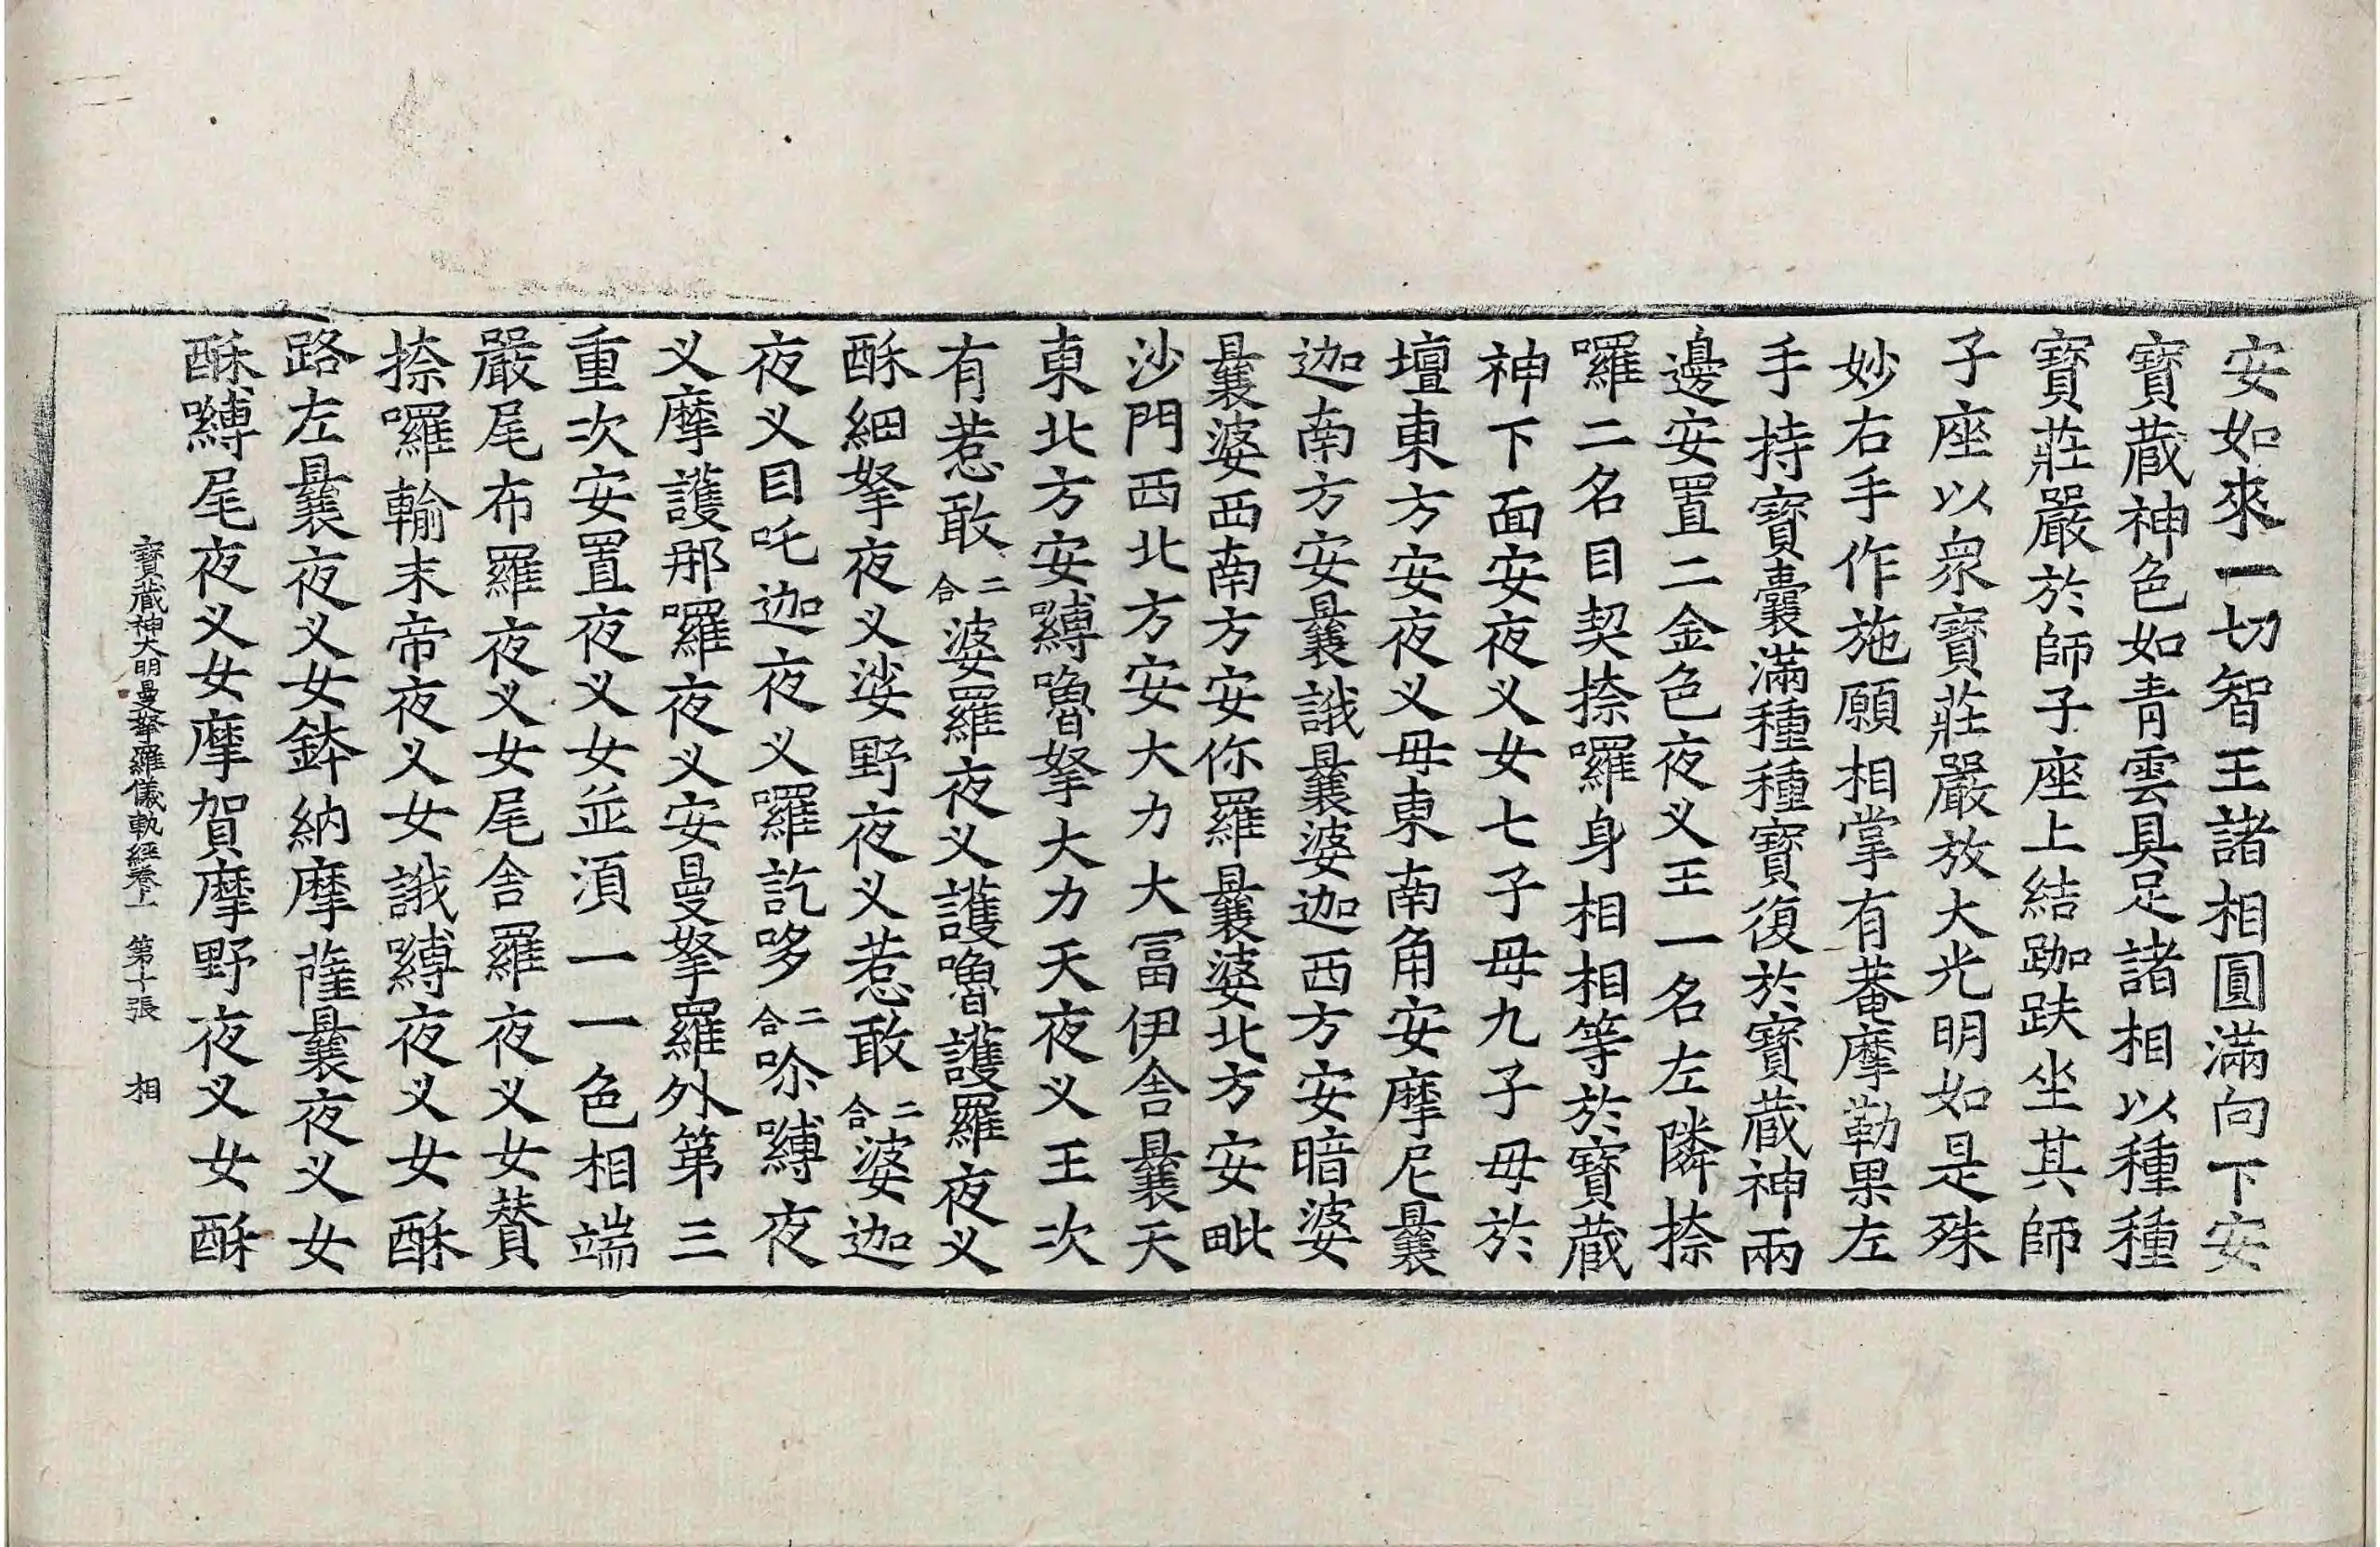 安如來一切智王諸相圓滿向下安
寶藏神色如青雲具足諸相以種種
寶莊嚴於師子座上結跏趺坐其師
子座以衆寶莊嚴放大光明如是殊
妙右手作施願相掌有菴摩勒果左
手持寶囊滿種種寶復於寶藏神兩
邊安置二金色夜义王一名左隣捺
囉二名目契捺囉身相相等於寶藏
神下面安夜义女七子母九子母於
壇東方安夜义母東南角安摩尼曩
迦南方安曩誐曩婆迦西方安暗婆
曩婆西南方安你羅曩婆北方安毗
沙門西北方安大力大冨伊舍曩天
東北方安嚩嚕拏大力天夜义王次
有惹敢二合婆羅夜义護嚕護羅夜义
酥細拏夜义娑野夜义惹敢二合婆迦
夜义目吒迦夜义囉訖哆二合嚩夜
义摩護那囉夜义安曼拏羅外第三
重次安置夜义女並須一一色相端
嚴尾布羅夜义女尾舍羅夜义女賛
捺囉輸末帝夜义女誐嚩夜义女酥
路左曩夜义女鉢納摩薩曩夜义女
酥嚩尾夜义女摩賀摩野夜义女酥
寶藏神大明曼拏羅儀軌經卷上 第十張 相